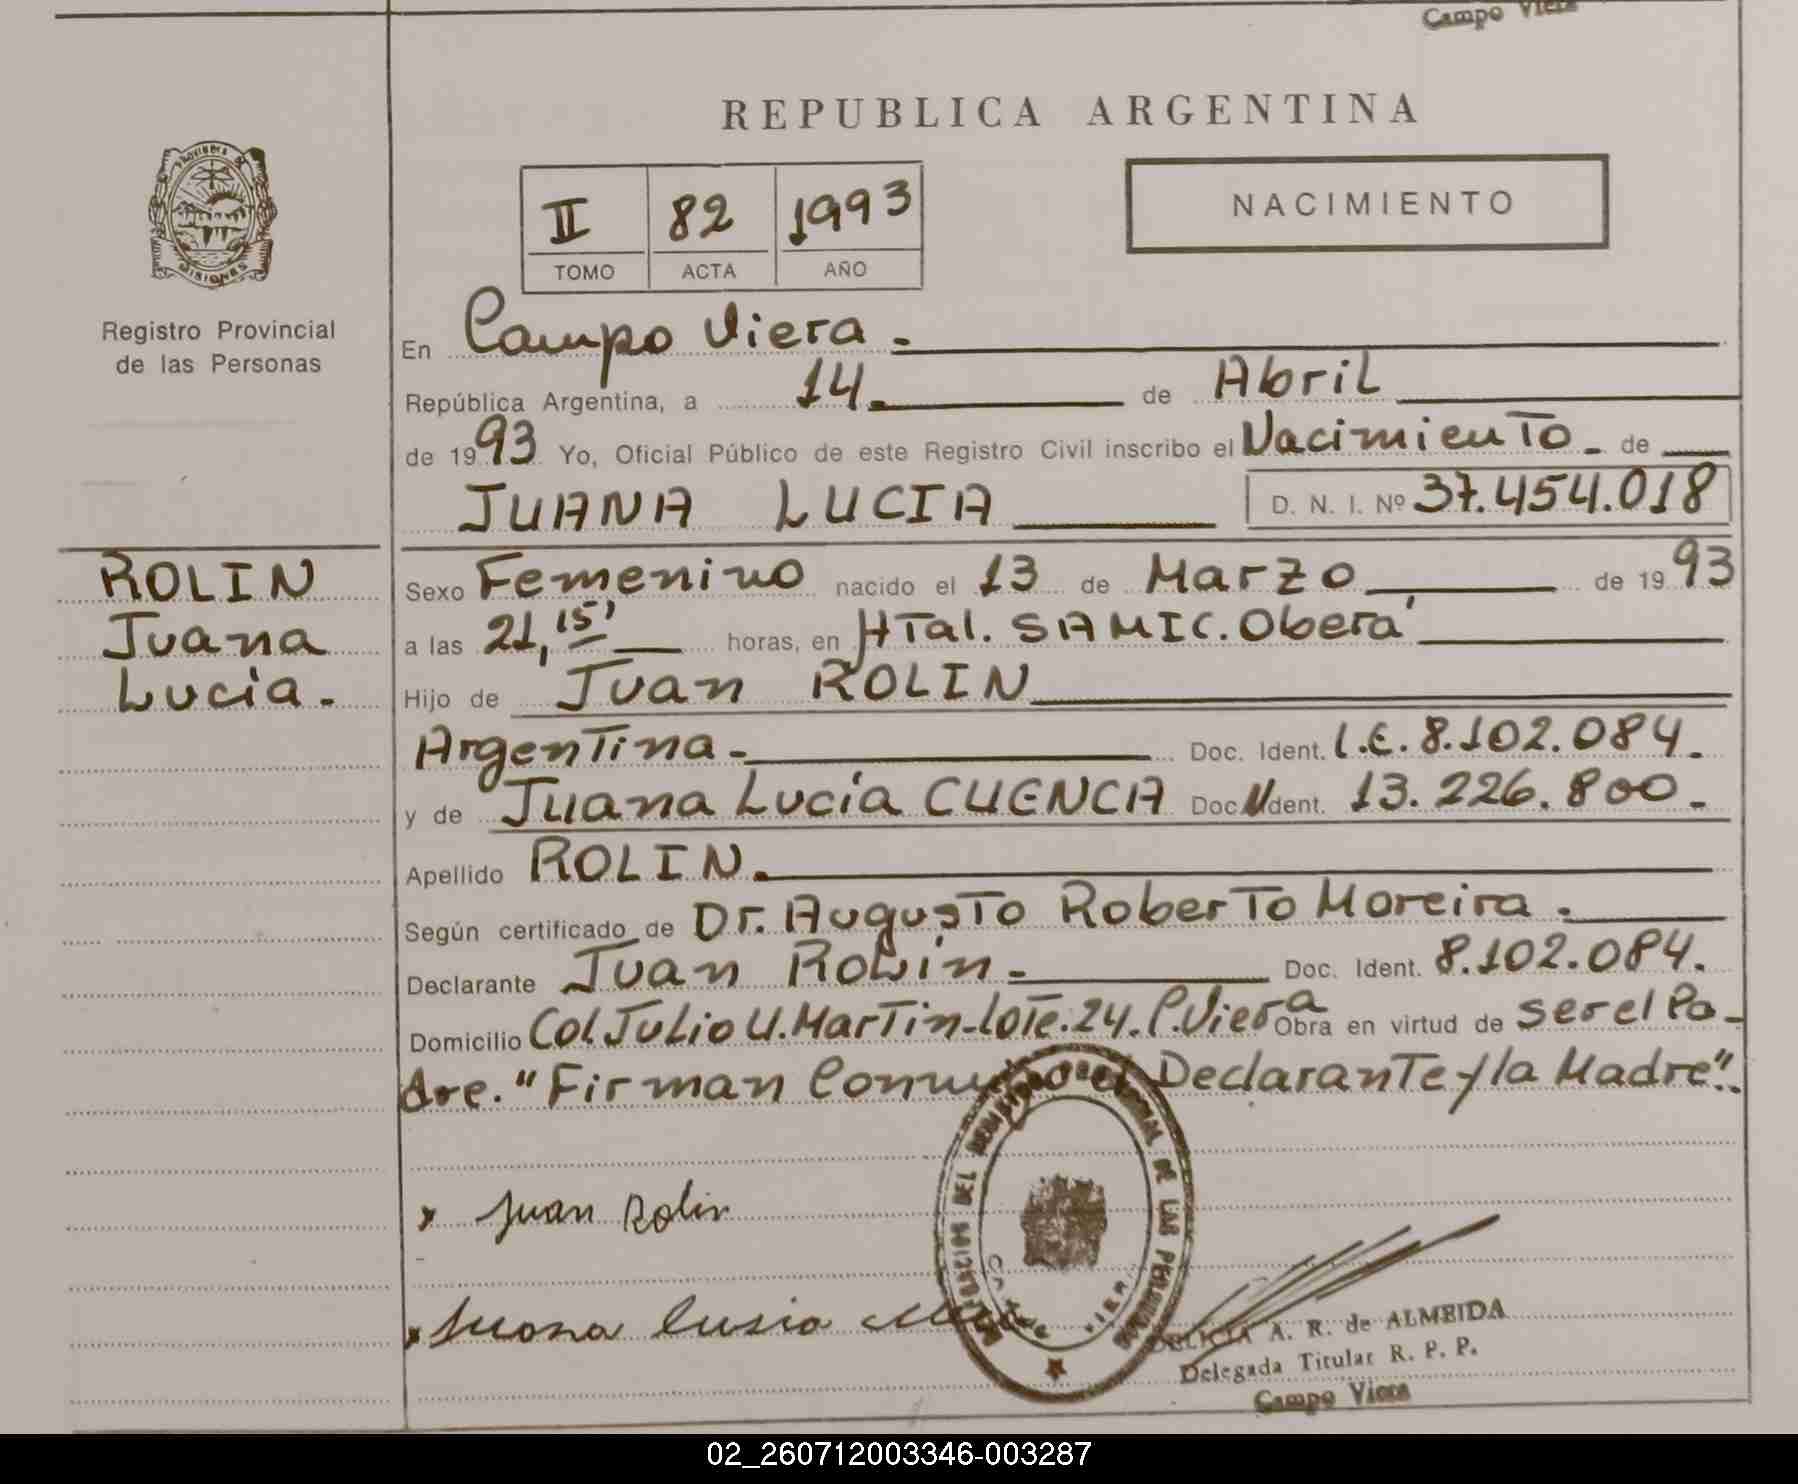 Campo Viera
REPUBLICA ARGENTINA
PROVINCIA DE
MISIONES
Registro Provincial
de las Personas
II 82 1993
TOMO ACTA AÑO
NACIMIENTO
En Campo Viera.
República Argentina, a 14. de Abril
de 1993 Yo, Oficial Público de este Registro Civil inscribo el Nacimiento de
JUANA LUCIA D. N. I. Nº 37.454.018
ROLIN
Juana
Lucia.
Sexo Femenino nacido el 13 de Marzo de 1993
a las 21,15' horas, en HTal. SAMIC. Oberá
Hijo de Juan ROLIN
Argentina. Doc. Ident. L.E. 8.102.084.
y de Juana Lucía CUENCA Doc. Ident. 13.226.800.
Apellido ROLIN.
Según certificado de Dr. Augusto Roberto Moreira.
Declarante Juan Rolin. Doc. Ident. 8.102.084.
Domicilio Col Julio U. Martin-lote.24. C.Viera Obra en virtud de ser el Pa-
dre. "Firman Conmigo el Declarante y la Madre".
x Juan Rolin
x Juana Lusia
DELICIA A. R. de ALMEIDA
Delegada Titular R. P. P.
Campo Viera
02_260712003346-003287